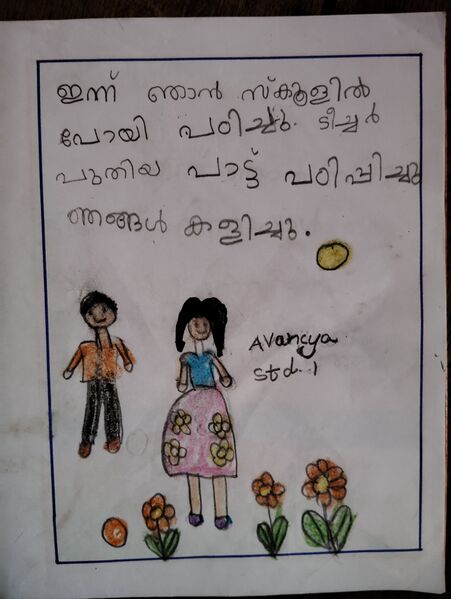 ഇന്ന് ഞാൻ സ്കൂളിൽ
പോയി പഠിച്ചു. ടീച്ചർ
പുതിയ പാട്ട് പഠിപ്പിച്ചു
ഞങ്ങൾ കളിച്ചു.
Avancya
Std. 1